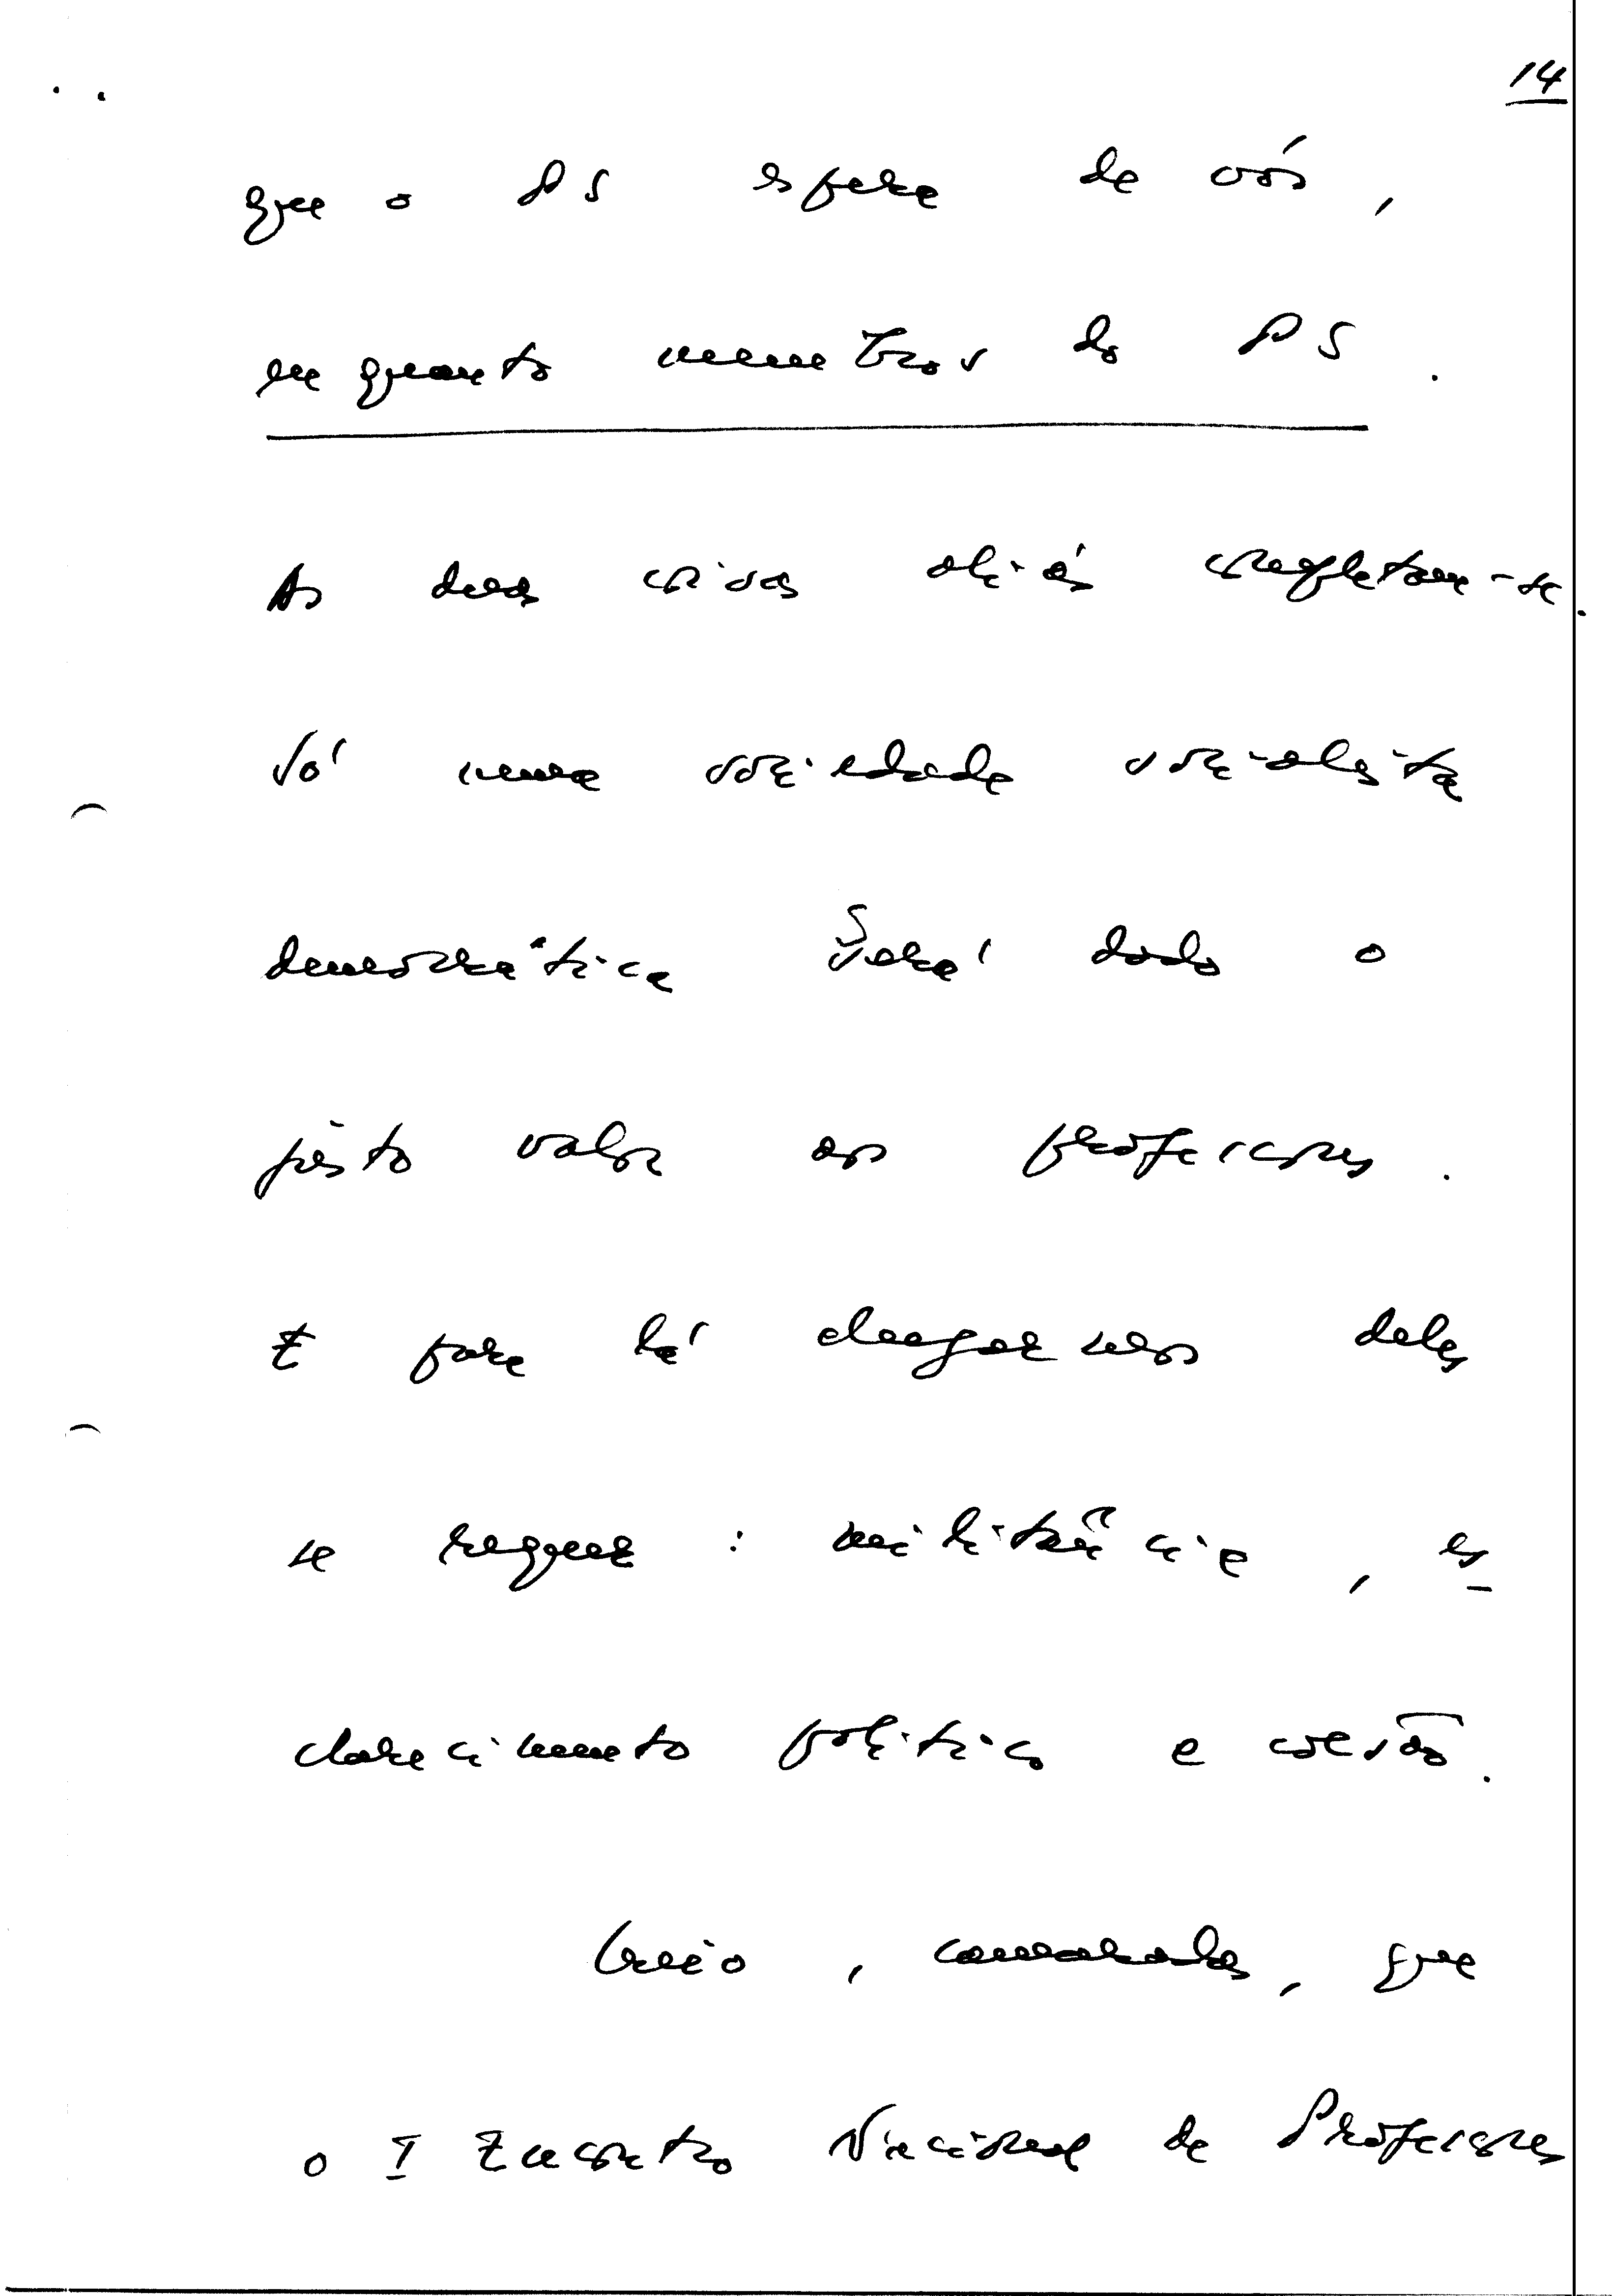 14
que o PS espera de vós,
enquanto membros do PS.
As duas coisas aliás completam-se.
Só numa sociedade socialista
democrática será dado o
justo valor aos professores.
E para lá chegarmos deles
se requer: militância, es-
clarecimento político e coesão.
Creio, camaradas, que
o I Encontro Nacional de Professores